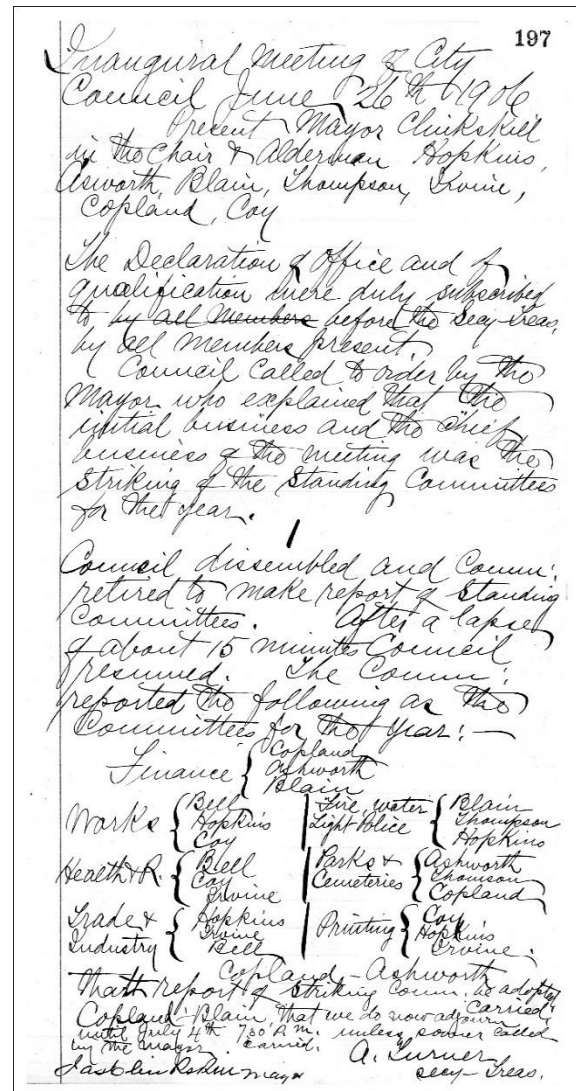 197
Inaugural Meeting of City
Council June 26th 1906
Present Mayor Clinkskill
in the Chair & Alderman Hopkins,
Asworth, Blain, Thompson, Irvine,
Copland, Coy
The Declaration of Office and of
qualification were duly subscribed
to by all Members before the Secy-Treas,
by all members present.
Council called to order by the
Mayor who explained that the
initial business and the chief
business of the meeting was the
striking of the Standing Committees
for the year.
Council dissembled and Comm:
retired to make report of Standing
Committees. After a lapse
of about 15 minutes Council
resumed. The Comm:
reported the following as the
Committees for the Year:—
Finance { Copland
Ashworth
Blain
Works { Bell
Hopkins
Coy
Fire, water
Light Police { Blain
Thompson
Hopkins
Health & R. { Bell
Coy
Irvine
Parks &
Cemeteries { Ashworth
Thomson
Copland
Trade &
Industry { Hopkins
Irvine
Bell
Printing { Coy
Hopkins
Irvine.
Copland - Ashworth
That report of Striking Comm. be adopted
Carried.
Copland - Blain, that we do now adjourn
until July 4th 7:30 P.M. unless sooner called
by the mayor Carried.
A. Turner
Secy-Treas.
Jas Clinkskill Mayor